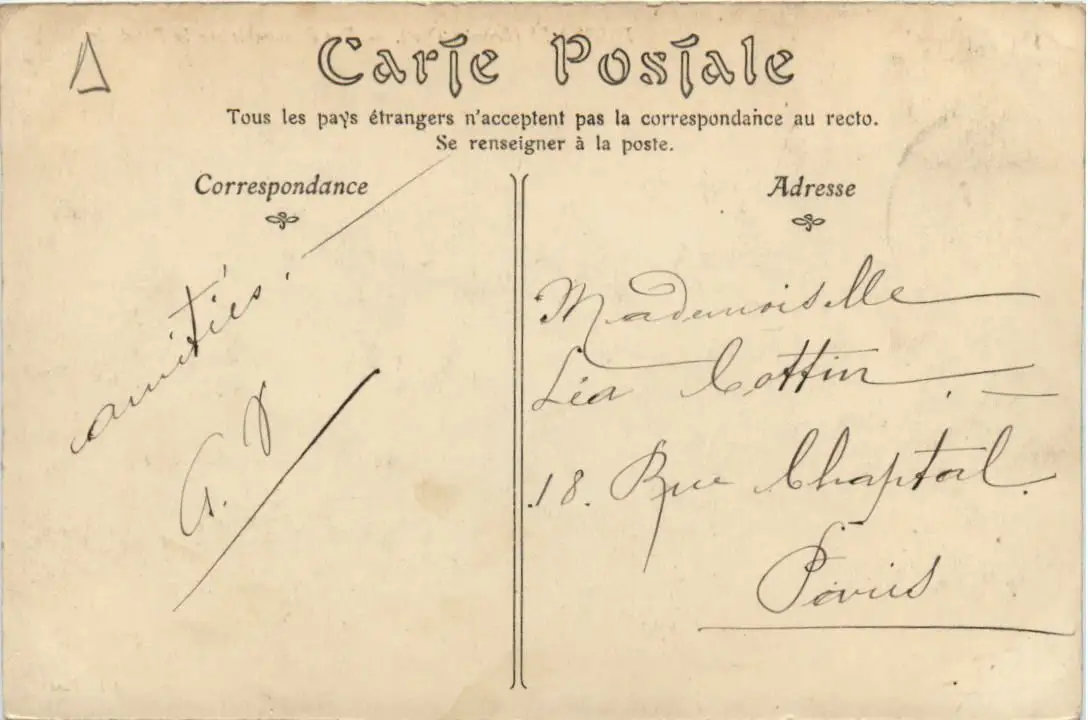 Carte Postale
Tous les pays étrangers n'acceptent pas la correspondance au recto.
Se renseigner à la poste.
Correspondance
amitiés.
Adresse
Mademoiselle
Léa Cottin
18. Rue Chaptal.
Paris